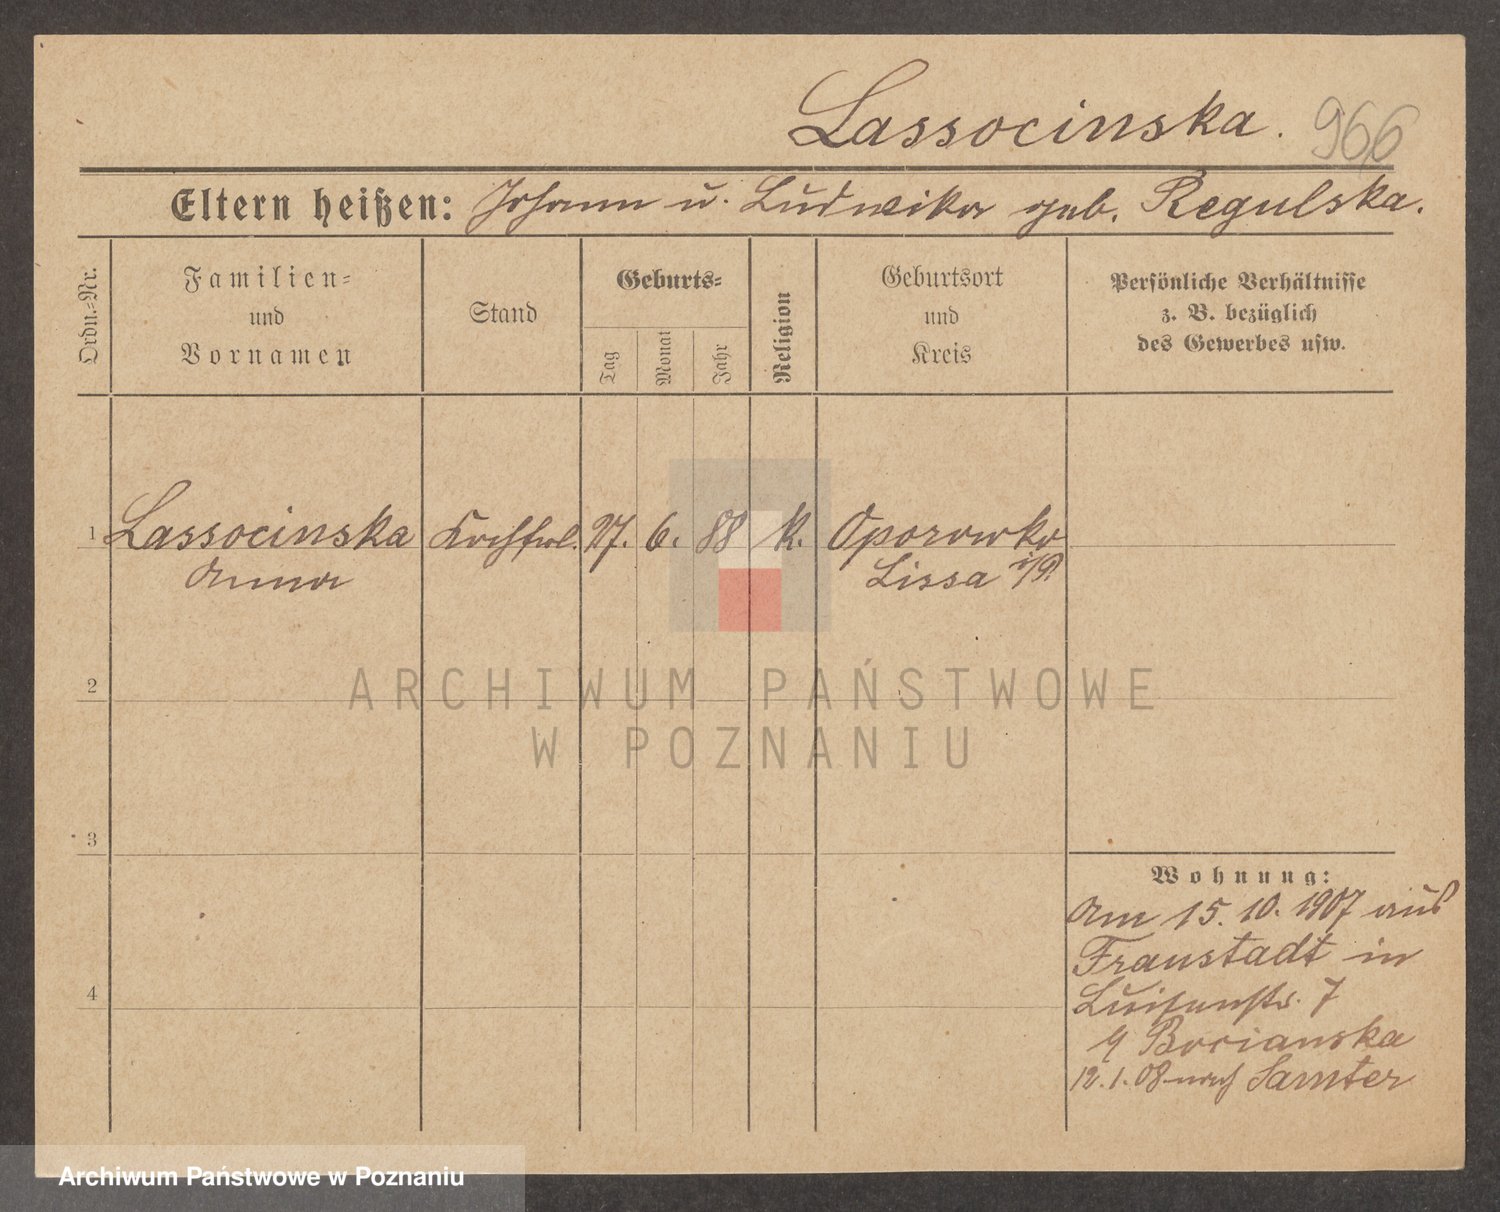 Lassocinska. 966
Eltern heißen: Johann u. Ludwika geb. Regulska.
Ordn.-Nr.
Familien-
und
Vornamen
Stand
Geburts-
Tag
Monat
Jahr
Religion
Geburtsort
und
Kreis
Persönliche Verhältnisse
z. B. bezüglich
des Gewerbes usw.
1 Lassocinska 27. 6. 88 k. Oporowko
Anna Lissa i/P.
2
3
4
Wohnung:
Am 15. 10. 1907 aus
Fraustadt in
Luisenstr. 7
Bocianska
12. 1. 08 nach Samter
ARCHIWUM PAŃSTWOWE
W POZNANIU
Archiwum Państwowe w Poznaniu